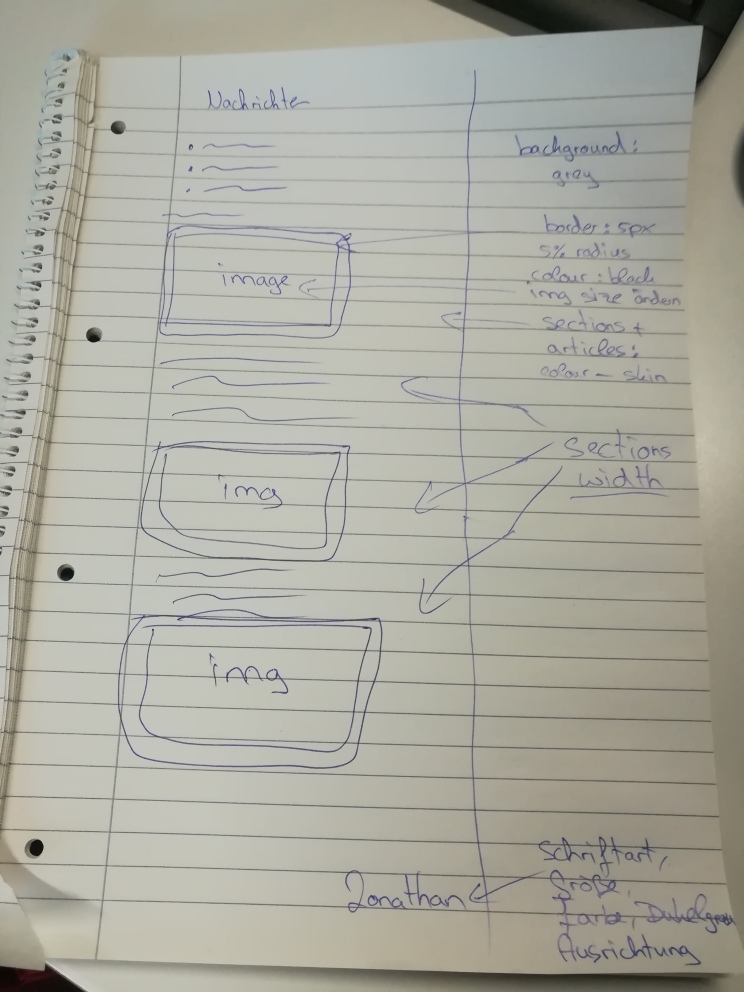 Nachrichten
background:
grey
border: 5px
5% radius
image
colour: black
img size ändern
sections +
articles:
colour - skin
sections
width
img
img
Schriftart,
Größe,
Jonathan
Farbe, Dukelgrau
Ausrichtung